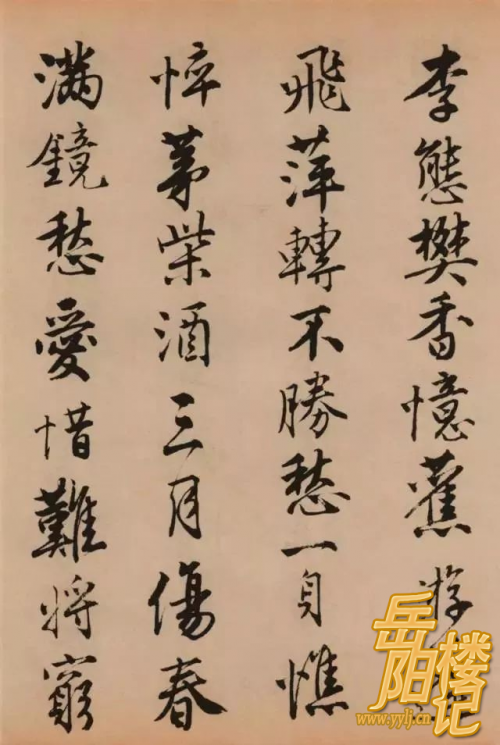 李態樊香憶舊遊
飛萍轉不勝愁一身憔
悴茅柴酒三月傷春
滿鏡愁愛惜難將窮
岳阳楼记
www.yylj.cn